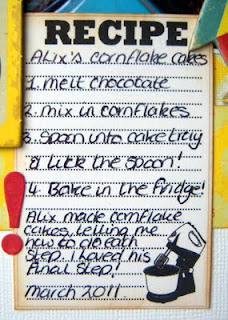 RECIPE
Alix's cornflake cakes
1. melt chocolate
2. mix in cornflakes
3. Spoon into cake tray
& lick the spoon!
4. Bake in the fridge!
Alix made cornflake
cakes, telling me
how to do each
step. I loved his
final step!
march 2011